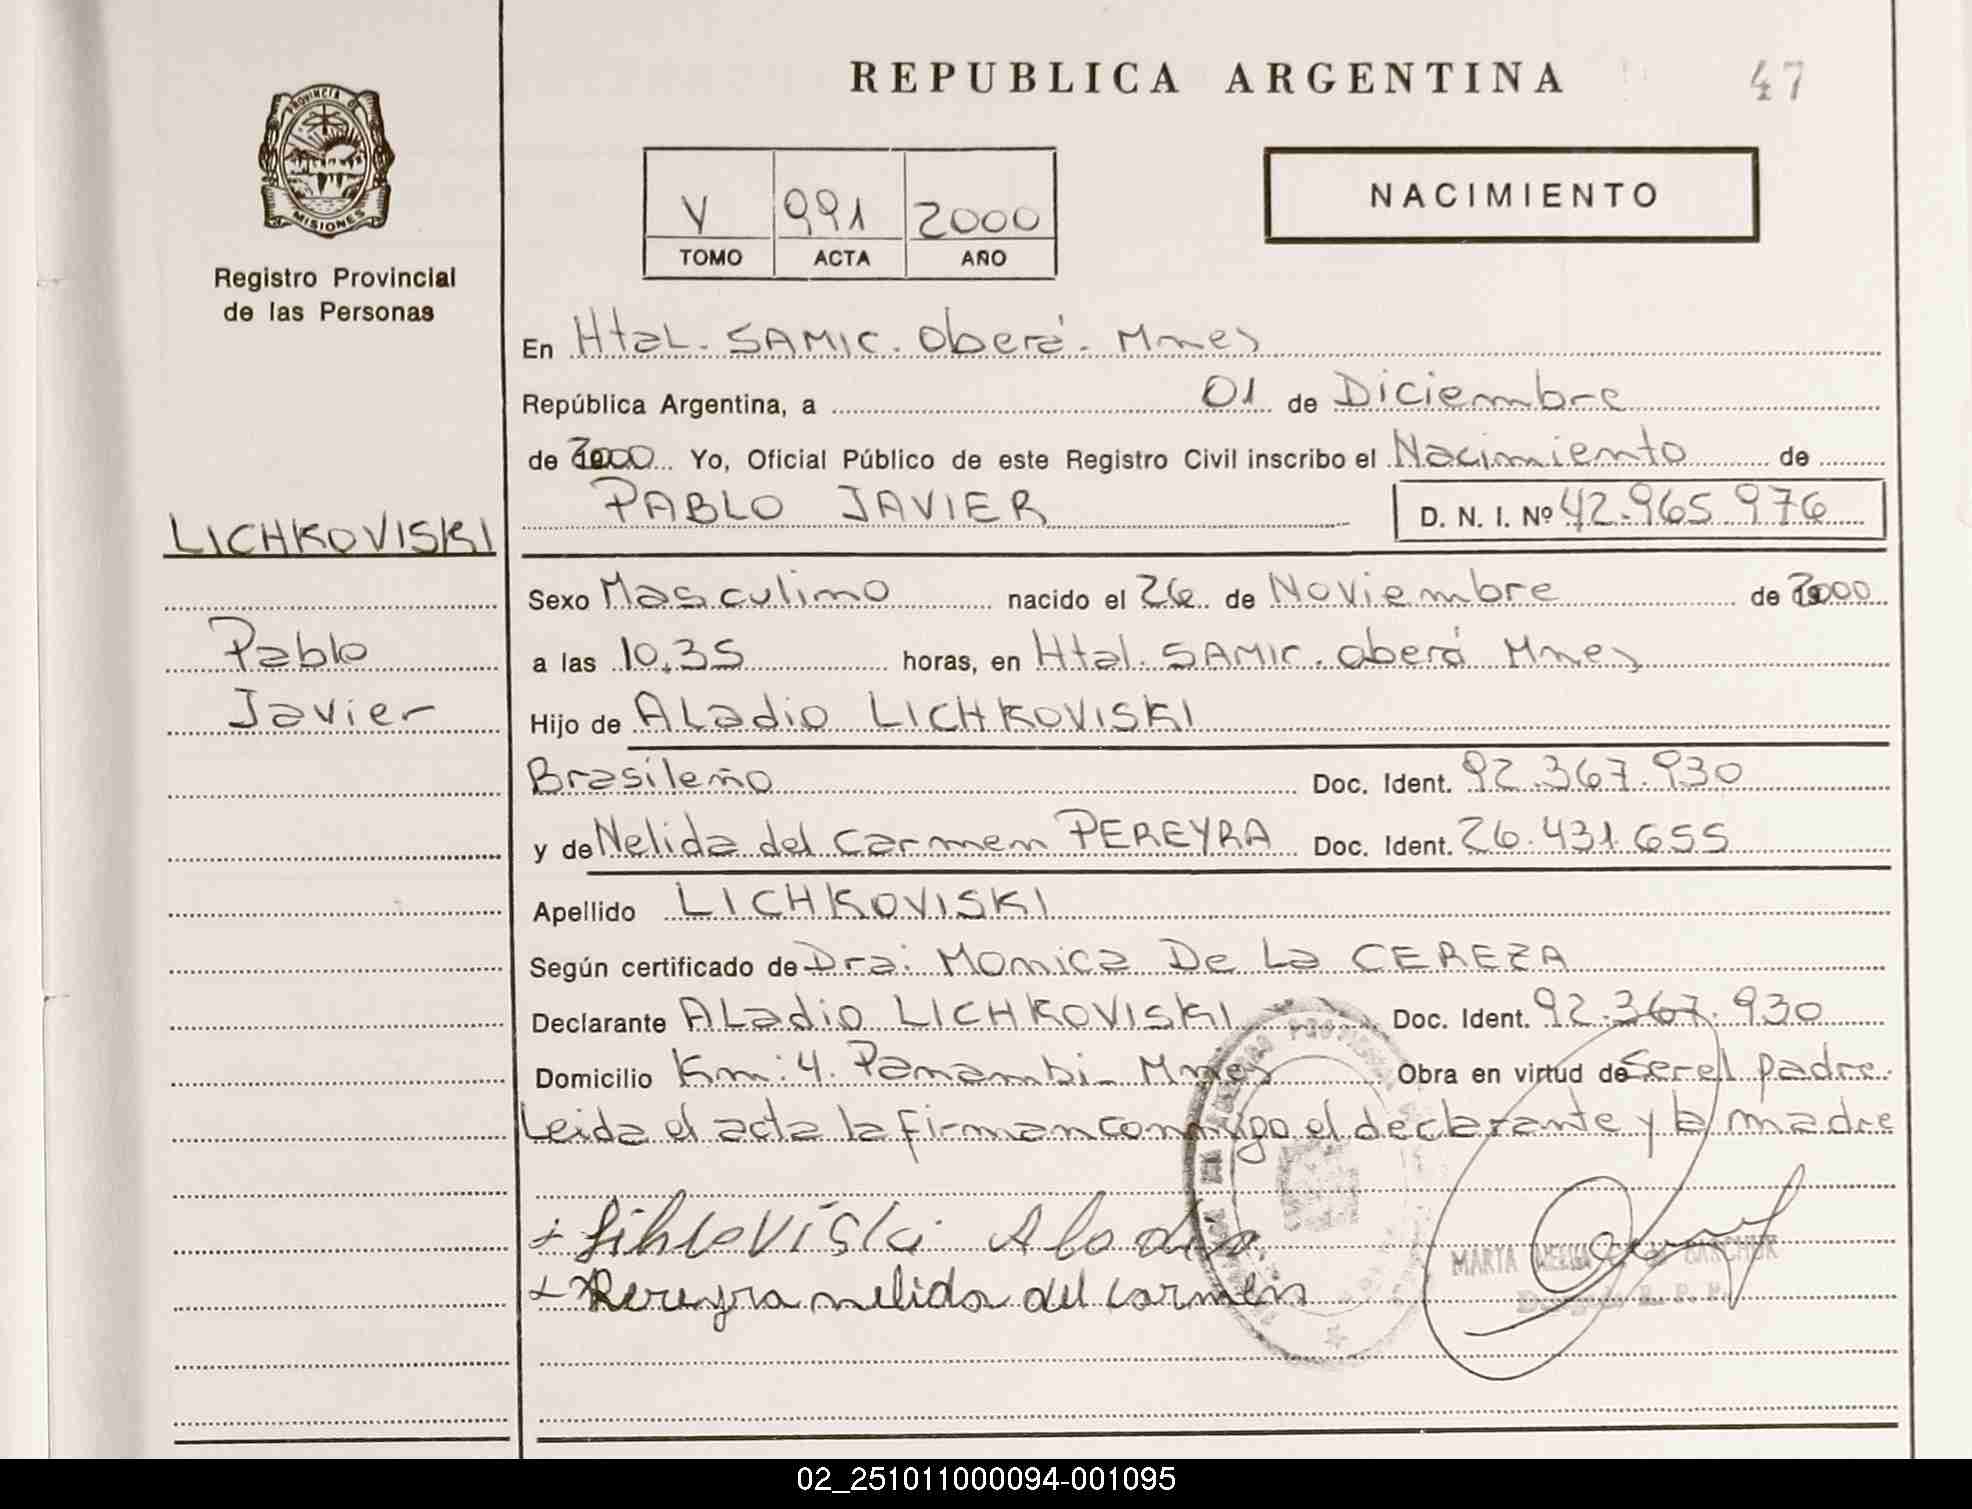 REPUBLICA ARGENTINA
47
PROVINCIA DE
MISIONES
Registro Provincial
de las Personas
V 991 2000
TOMO ACTA AÑO
NACIMIENTO
En Htal. SAMIC. Oberá. Mnes
República Argentina, a 01 de Diciembre
de 2000 Yo, Oficial Público de este Registro Civil inscribo el Nacimiento de
PABLO JAVIER D. N. I. Nº 42.965.976
LICHKOVISKI
Sexo Masculino nacido el 26 de Noviembre de 2000
Pablo
a las 10.35 horas, en Htal. SAMIC. Oberá Mnes
Javier
Hijo de ALadio LICHKOVISKI
Brasileño Doc. Ident. 92.367.930
y de Nelida del Carmen PEREYRA Doc. Ident. 26.431.655
Apellido LICHKOVISKI
Según certificado de Dra: Monica De La CEREZA
Declarante ALadio LICHKOVISKI Doc. Ident. 92.367.930
Domicilio Km: 4. Panambi- Mnes Obra en virtud de ser el padre.
Leida el acta la firman conmigo el declarante y la madre
Aladio
Pereyra nelida del carmen
MARTA
02_251011000094-001095